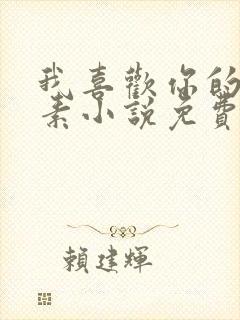 我喜歡你的
素小說免費
賴建輝